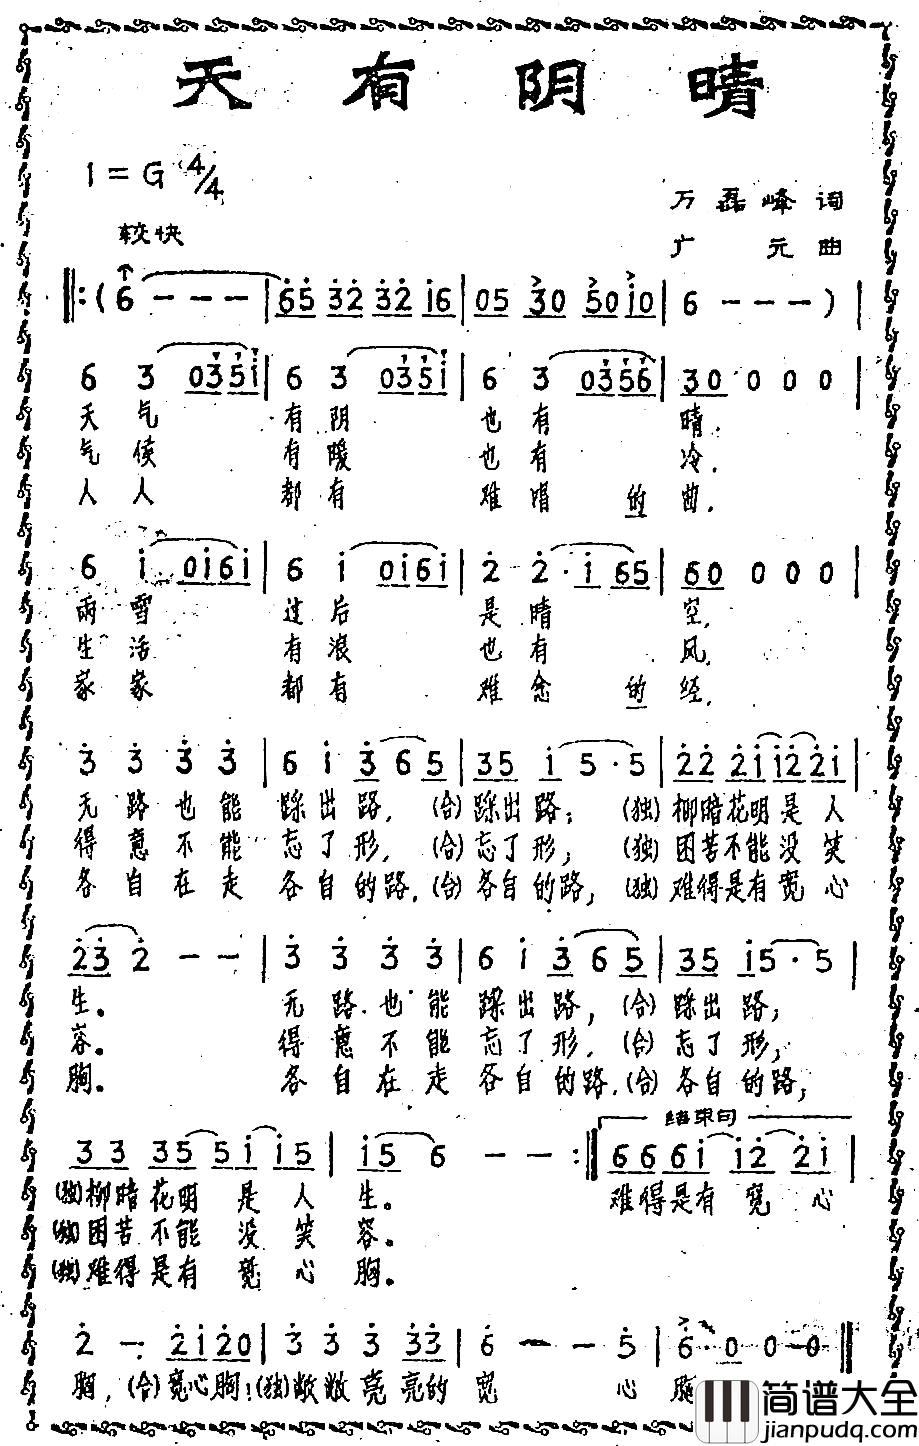 天有阴晴
1=G 4/4
万磊峰 词
较快
广元 曲
‖:(6 - - - | 65 32 32 16 | 05 30 50 10 | 6 - - - ) |
6 3 0351 | 6 3 0351 | 6 3 0356 | 30 0 0 0 |
天气 有阴 也有 晴.
气候 有暖 也有 冷.
人人 都有 难唱 的曲.
6 1 0161 | 6 1 0161 | 2 2·1 65 | 60 0 0 0 |
雨雪 过后 是晴 空,
生活 有浪 也有 风,
家家 都有 难念 的经,
3 3 3 3 | 6 1 3 6 5 | 35 1 5·5 | 22 21 12 21 |
无路也能 踩出路,(合)踩出路;(独)柳暗花明是人
得意不能 忘了形,(合)忘了形;(独)困苦不能没笑
各自在走 各自的路,(合)各自的路,(独)难得是有宽心
23 2 - - | 3 3 3 3 | 6 1 3 6 5 | 35 15·5 |
生。 无路也能 踩出路,(合)踩出路;
容。 得意不能 忘了形,(合)忘了形;
胸。 各自在走 各自的路,(合)各自的路,
结束句
33 35 51 15 | 15 6 - - :‖ 66 61 12 21 |
(独)柳暗花明是人 生。 难得是有宽心
(独)困苦不能没笑 容。
(独)难得是有宽心 胸。
2 - 21 20 | 3 3 3 33 | 6 - - 5 | 6·0 0 0 ‖
胸,(合)宽心胸!(独)敞敞亮亮的 宽 心 胸
简谱大全
jianpudq.com